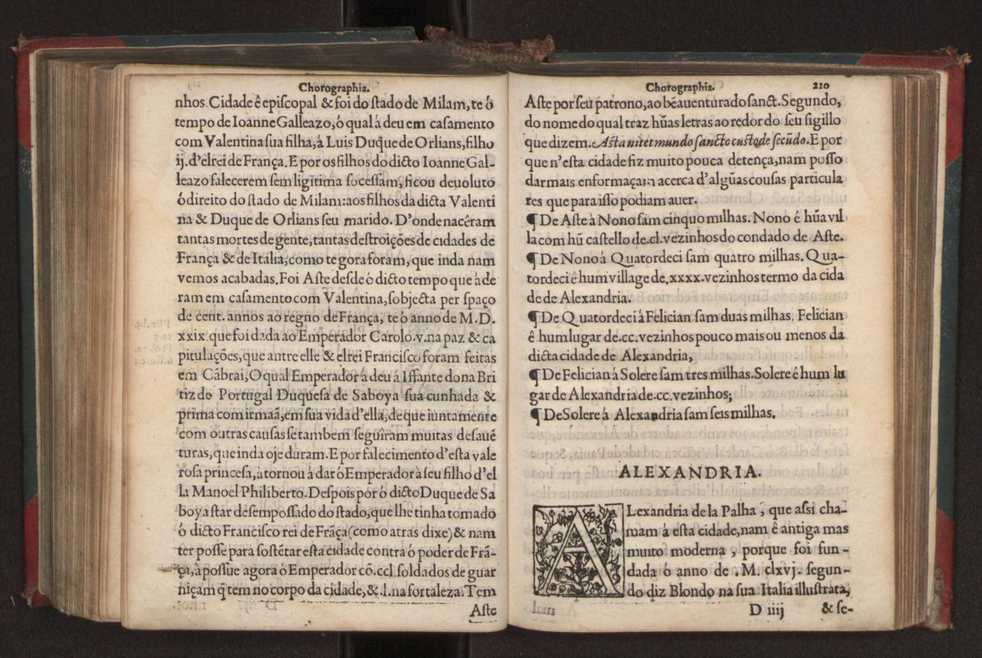 Chorographia.
nhos. Cidade ê episcopal & foi do stado de Milam, te ó
tempo de Ioanne Galleazo, ó qual á deu em casamento
com Valentina sua filha, à Luis Duque de Orlians, filho
ij. d'elrei de França. E por os filhos do dicto Ioanne Gal-
leazo falecerem sem ligitima socessam, ficou deuoluto
ó direito do stado de Milam: aos filhos da dicta Valenti
na & Duque de Orlians seu marido. D'onde nacéram
tantas mortes de gente, tantas destroições de cidades de
França & de Italia, como tegora foram, que inda nam
vemos acabadas. Foi Aste desde ó dicto tempo que á de
ram em casamento com Valentina, sobjecta per spaço
de cent. annos ao regno de França, te ó anno de M.D.
xxix que foi dada ao Emperador Carolo.v. na paz & ca
pitulações, que antre elle & elrei Francisco foram feitas
em Cãbrai, O qual Emperador á deu á Iffante dona Bri
tiz de Portugal Duquesa de Saboya sua cunhada &
prima com irmaã, em sua vida d'ella, de que iuntamente
com outras causas se tambem seguîram muitas desauê
turas, que inda oje duram. E por falecimento d'esta vale
rosa princesa, à tornou á dar ó Emperador à seu filho d'el
la Manoel Philiberto. Despois por ó dicto Duque de Sa
boya star desempossado do stado, que lhe tinha tomado
ó dicto Francisco rei de Frãça (como atras dixe) & nam
ter posse para sostẽtar esta cidade contra ó poder de Frã-
ça, à possûe agora ó Emperador cõ.ccl. soldados de guar
niçam q̃ tem no corpo da cidade, &.l. na fortaleza. Tem
Aste
Chorographia. 210
Aste por seu patrono, ao bẽauenturado sanct. Segundo,
do nome do qual traz hũas letras ao redor do seu sigillo
que dizem. Asta nitet mundo sancto custode secũdo. E por
que n'esta cidade fiz muito pouca detença, nam posso
dar mais enformaçam acerca d'algũas cousas particula
res que para isso podiam auer.
¶ De Aste à Nono sam cinquo milhas. Nono é hũa vil
la com hũ castello de.cl. vezinhos do condado de Aste.
¶ De Nono à Quatordeci sam quatro milhas. Qua-
tordeci é hum village de.xxxx. vezinhos termo da cida
de de Alexandria.
¶ De Quatordeci à Felician sam duas milhas. Felician
ê hum lugar de.cc. vezinhos pouco mais ou menos da
dicta cidade de Alexandria,
¶ De Felician à Solere sam tres milhas. Solere ê hum lu
gar de Alexandria de.cc. vezinhos;
¶ De Solere á Alexandria sam seis milhas.
ALEXANDRIA.
ALexandria de la Palha, que assi cha-
mam á esta cidade, nam ê antiga mas
muito moderna, porque foi fun-
dada ó anno de .M. clxvj. segun-
do diz Blondo na sua Italia illustrata,
D iiij & se-